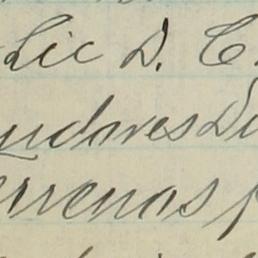 Lic D. C.
ndaresDi
rrenos p